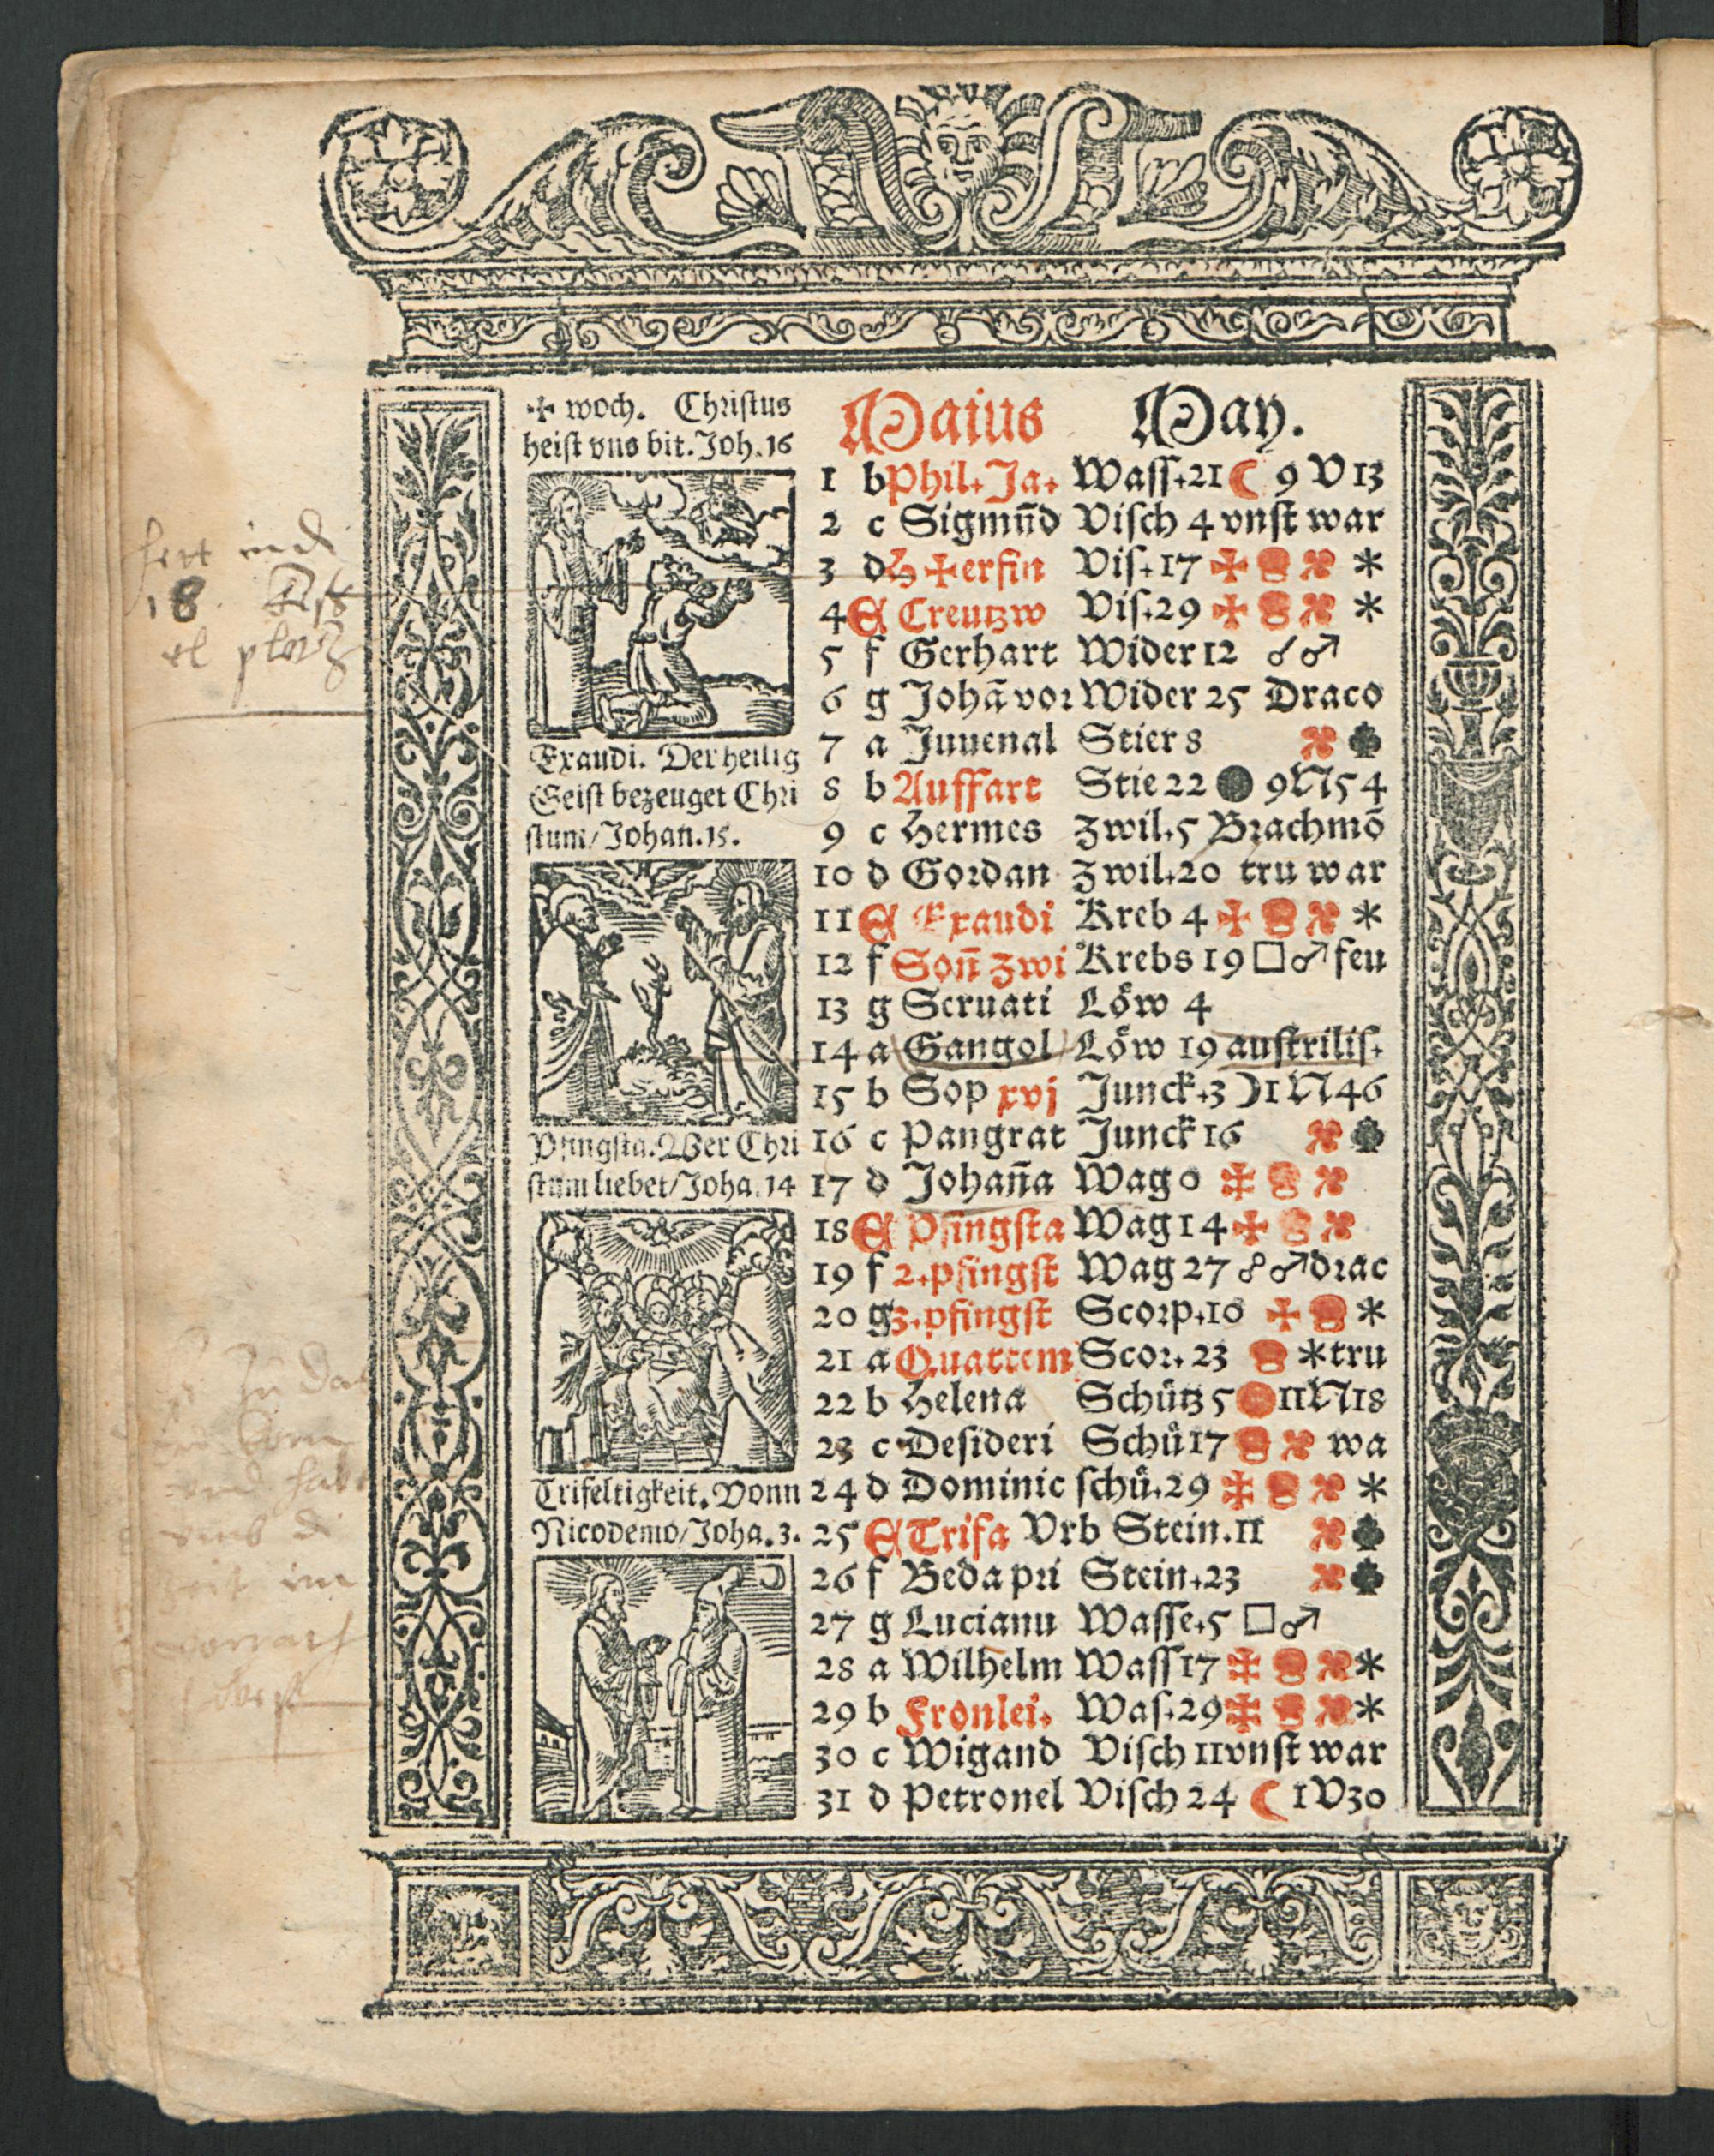 ✠ woch. Christus
heist vns bit. Joh. 16
Exaudi. Der heilig
Geist bezeuget Chri
stum/Johan. 15.
Pfingsta. Wer Chri
stum liebet/Joha. 14
Trifeltigkeit. Vonn
Nicodemo/Joha. 3.
Maius May.
1 b Phil. Ja. Wass. 21 ☾ 9 V 13
2 c Sigmūd Visch 4 vnst war
3 d H ✠ erfin Vis. 17 ✠ *
4 A Creutzw Vis. 29 ✠ *
5 f Gerhart Wider 12 ☌ ♂
6 g Johā vor Wider 25 Draco
7 a Juuenal Stier 8
8 b Auffart Stie 22 ● 9 N 54
9 c Hermes Zwil. 5 Brachmō
10 d Gordan Zwil. 20 tru war
11 A Exaudi Kreb 4 ✠ *
12 f Soñ zwi Krebs 19 □ ♂ feu
13 g Seruati Löw 4
14 a Gangol Löw 19 austrilis.
15 b Sop xvj Junck. 3 ☽ 1 N 46
16 c Pangrat Junck 16
17 d Johaña Wag 0
18 A Pfingsta Wag 14 ✠
19 f 2. pfingst Wag 27 ☍ ♂ drac
20 g 3. pfingst Scorp. 10 ✠ *
21 a Quattem Scor. 23 * tru
22 b Helena Schütz 5 ● 11 N 18
23 c Desideri Schü 17 wa
24 d Dominic schü. 29 *
25 A Trifa Vrb Stein. 11
26 f Beda pri Stein. 23
27 g Lucianu Wasse. 5 □ ♂
28 a Wilhelm Wass 17 *
29 b Fronlei. Was. 29 *
30 c Wigand Visch 11 vnst war
31 d Petronel Visch 24 ☾ 1 V 30
18